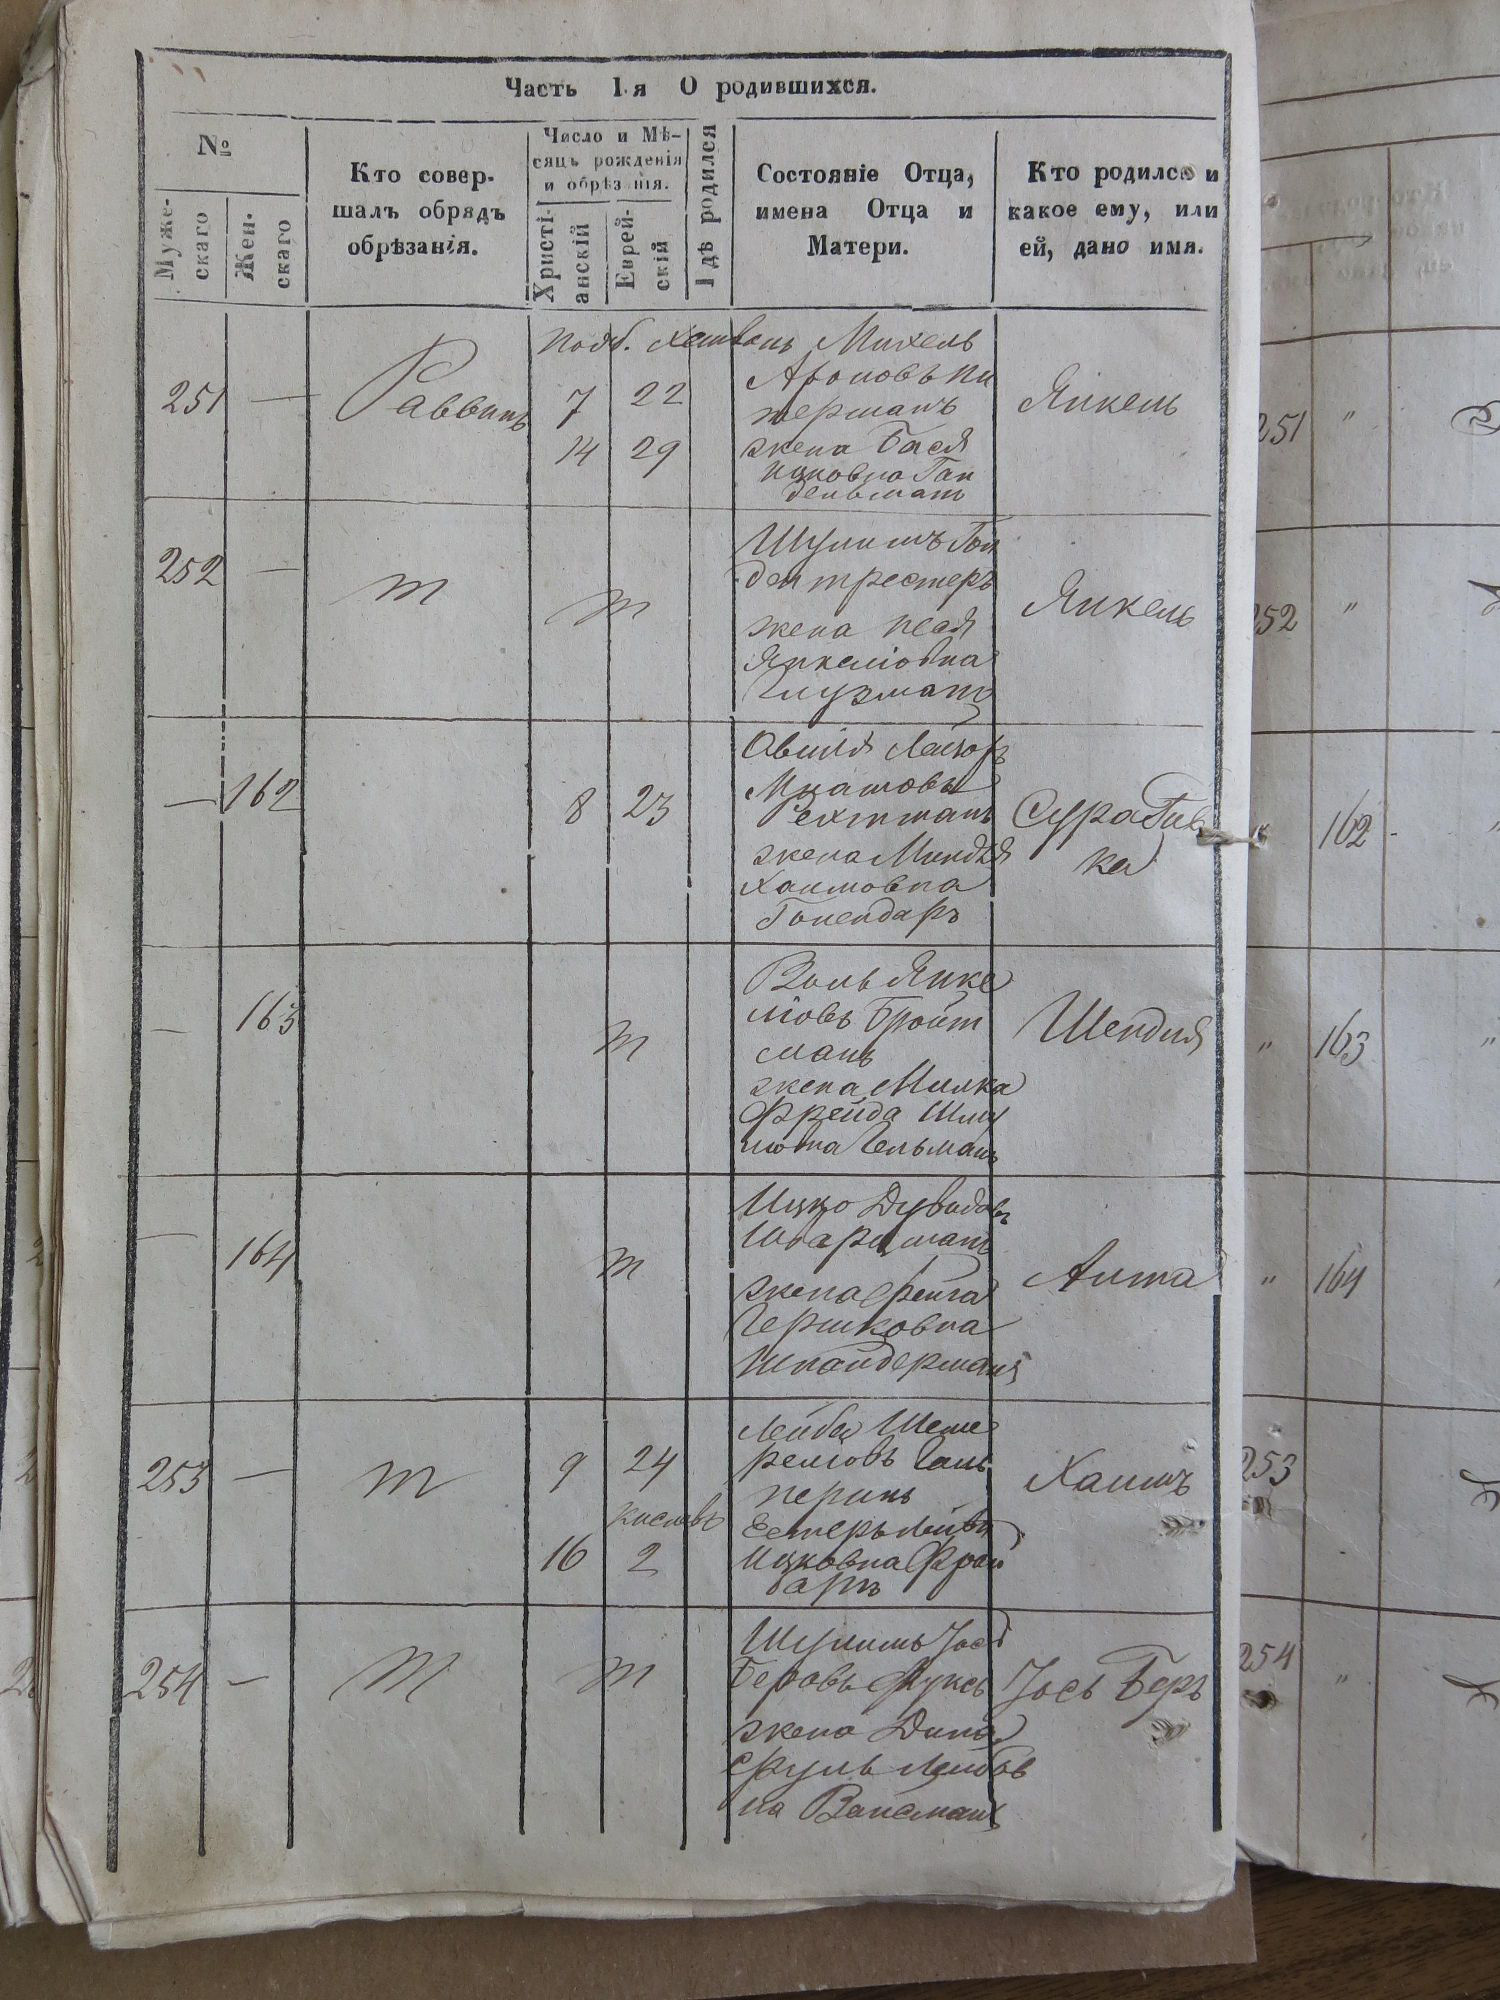 Часть I.я О родившихся.
№
Муже-
скаго
Жен-
скаго
Кто совер-
шалъ обрядъ
обрѣзанія.
Число и Мѣ-
сяцъ рожденія
и обрѣзанія.
Христі-
анскій
Еврей-
скій
Гдѣ родился
Состояніе Отца,
имена Отца и
Матери.
Кто родился и
какое ему, или
ей, дано имя.
251 —
Раввинъ
нояб. хешвань
7 22
14 29
Михель
Ароновъ
терманъ
жена Бася
Ицковна Ган
дельманъ
Янкель
252 —
т
т
Шулимъ Гол
дентрестеръ
жена Песя
Янкеліовна
Глузманъ
Янкель
— 162
8 23
Овшія Лейзоръ
Рехтманъ
жена Миндля
Хаимовна
Гонендаръ
Сура Рив
ка
— 163
т
Волъ Янке
ліовъ Бройт
манъ
жена Милка
Фрейда Шму
ліовна Гельманъ
Шендля
— 164
т
Ицко Дувидовъ
Шварцманъ
жена Фейга
Гершковна
Шнайдерманъ
Алта
253 —
т
9 24
кислевъ
16 2
Лейба Шме
реліовъ Галь
перинъ
Естеръ Лейва
Ицковна Фрай
Хаимъ
254 —
т
т
Шулимъ Іось
Беровъ Фуксъ
жена Дина
Сруль Лейбов
на Вайсманъ
Іось Беръ
251 "
252 "
" 162 -
" 163 "
" 164
253
254 "